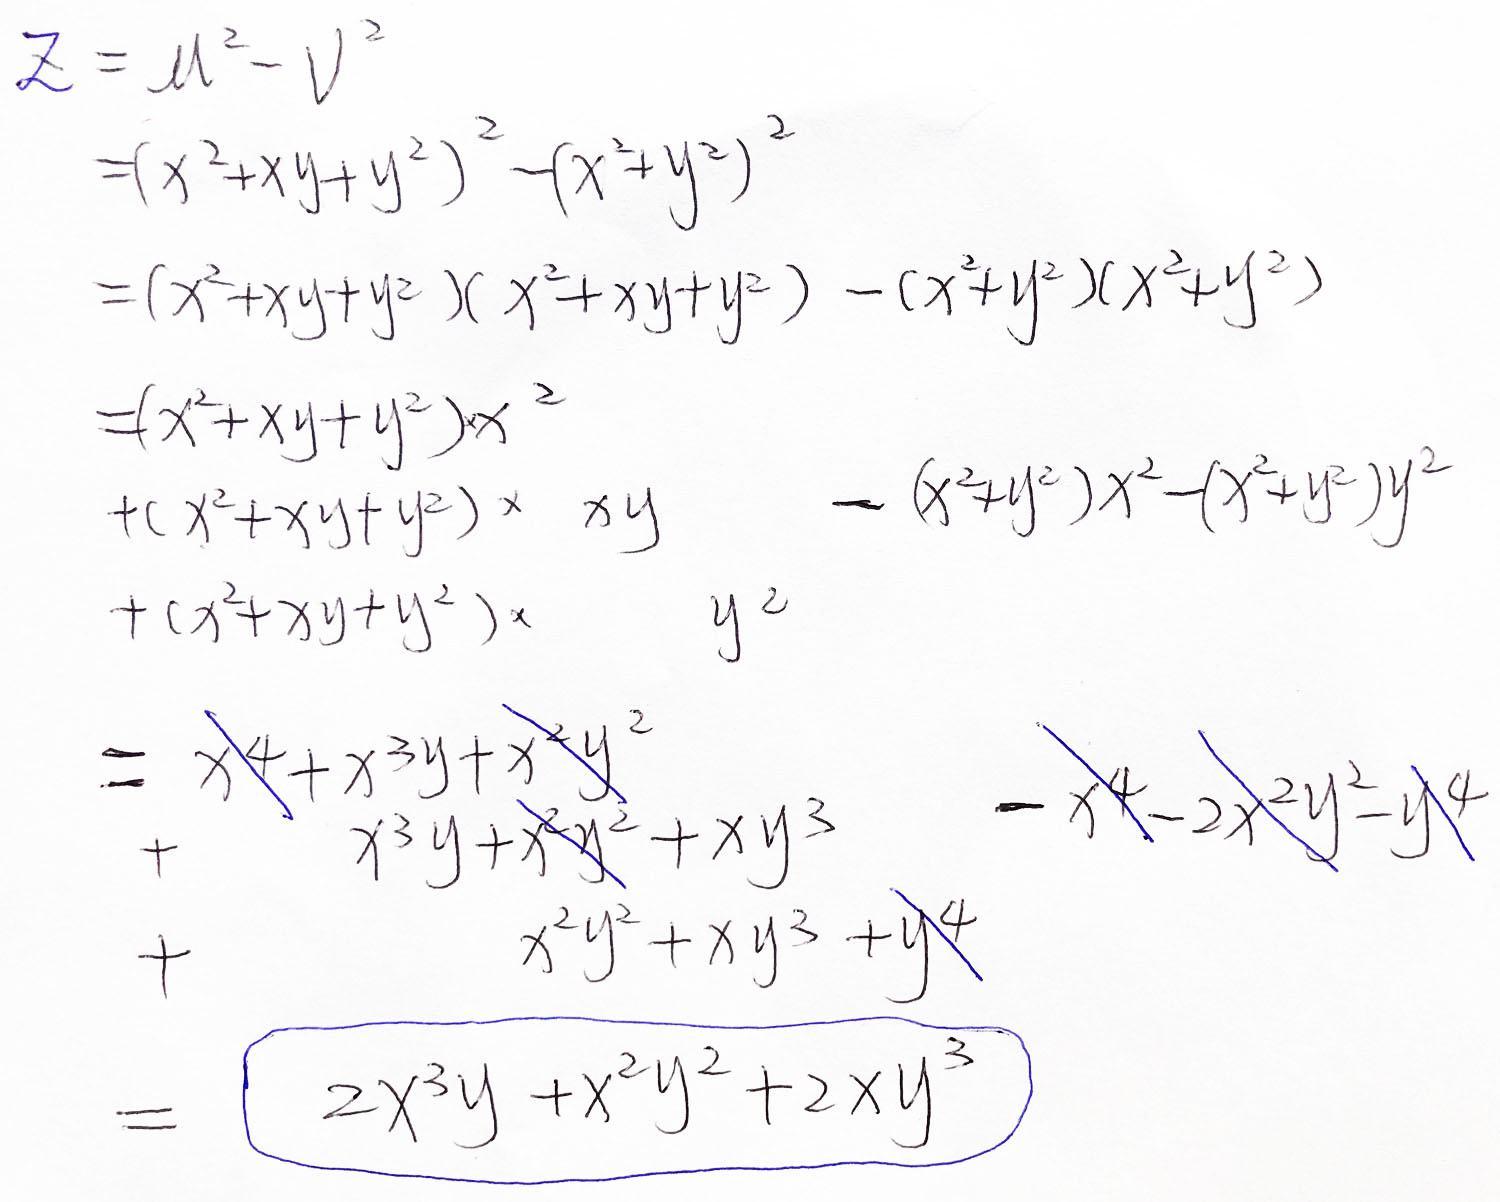 Z = μ² - ν²
=(x²+xy+y²)² -(x²+y²)²
=(x²+xy+y²)(x²+xy+y²) -(x²+y²)(x²+y²)
=(x²+xy+y²)×x²
+(x²+xy+y²)× xy - (x²+y²)x²-(x²+y²)y²
+(x²+xy+y²)× y²
= x⁴+x³y+x²y²
+ x³y+x²y²+xy³ - x⁴-2x²y²-y⁴
+ x²y²+xy³+y⁴
= 2x³y+x²y²+2xy³